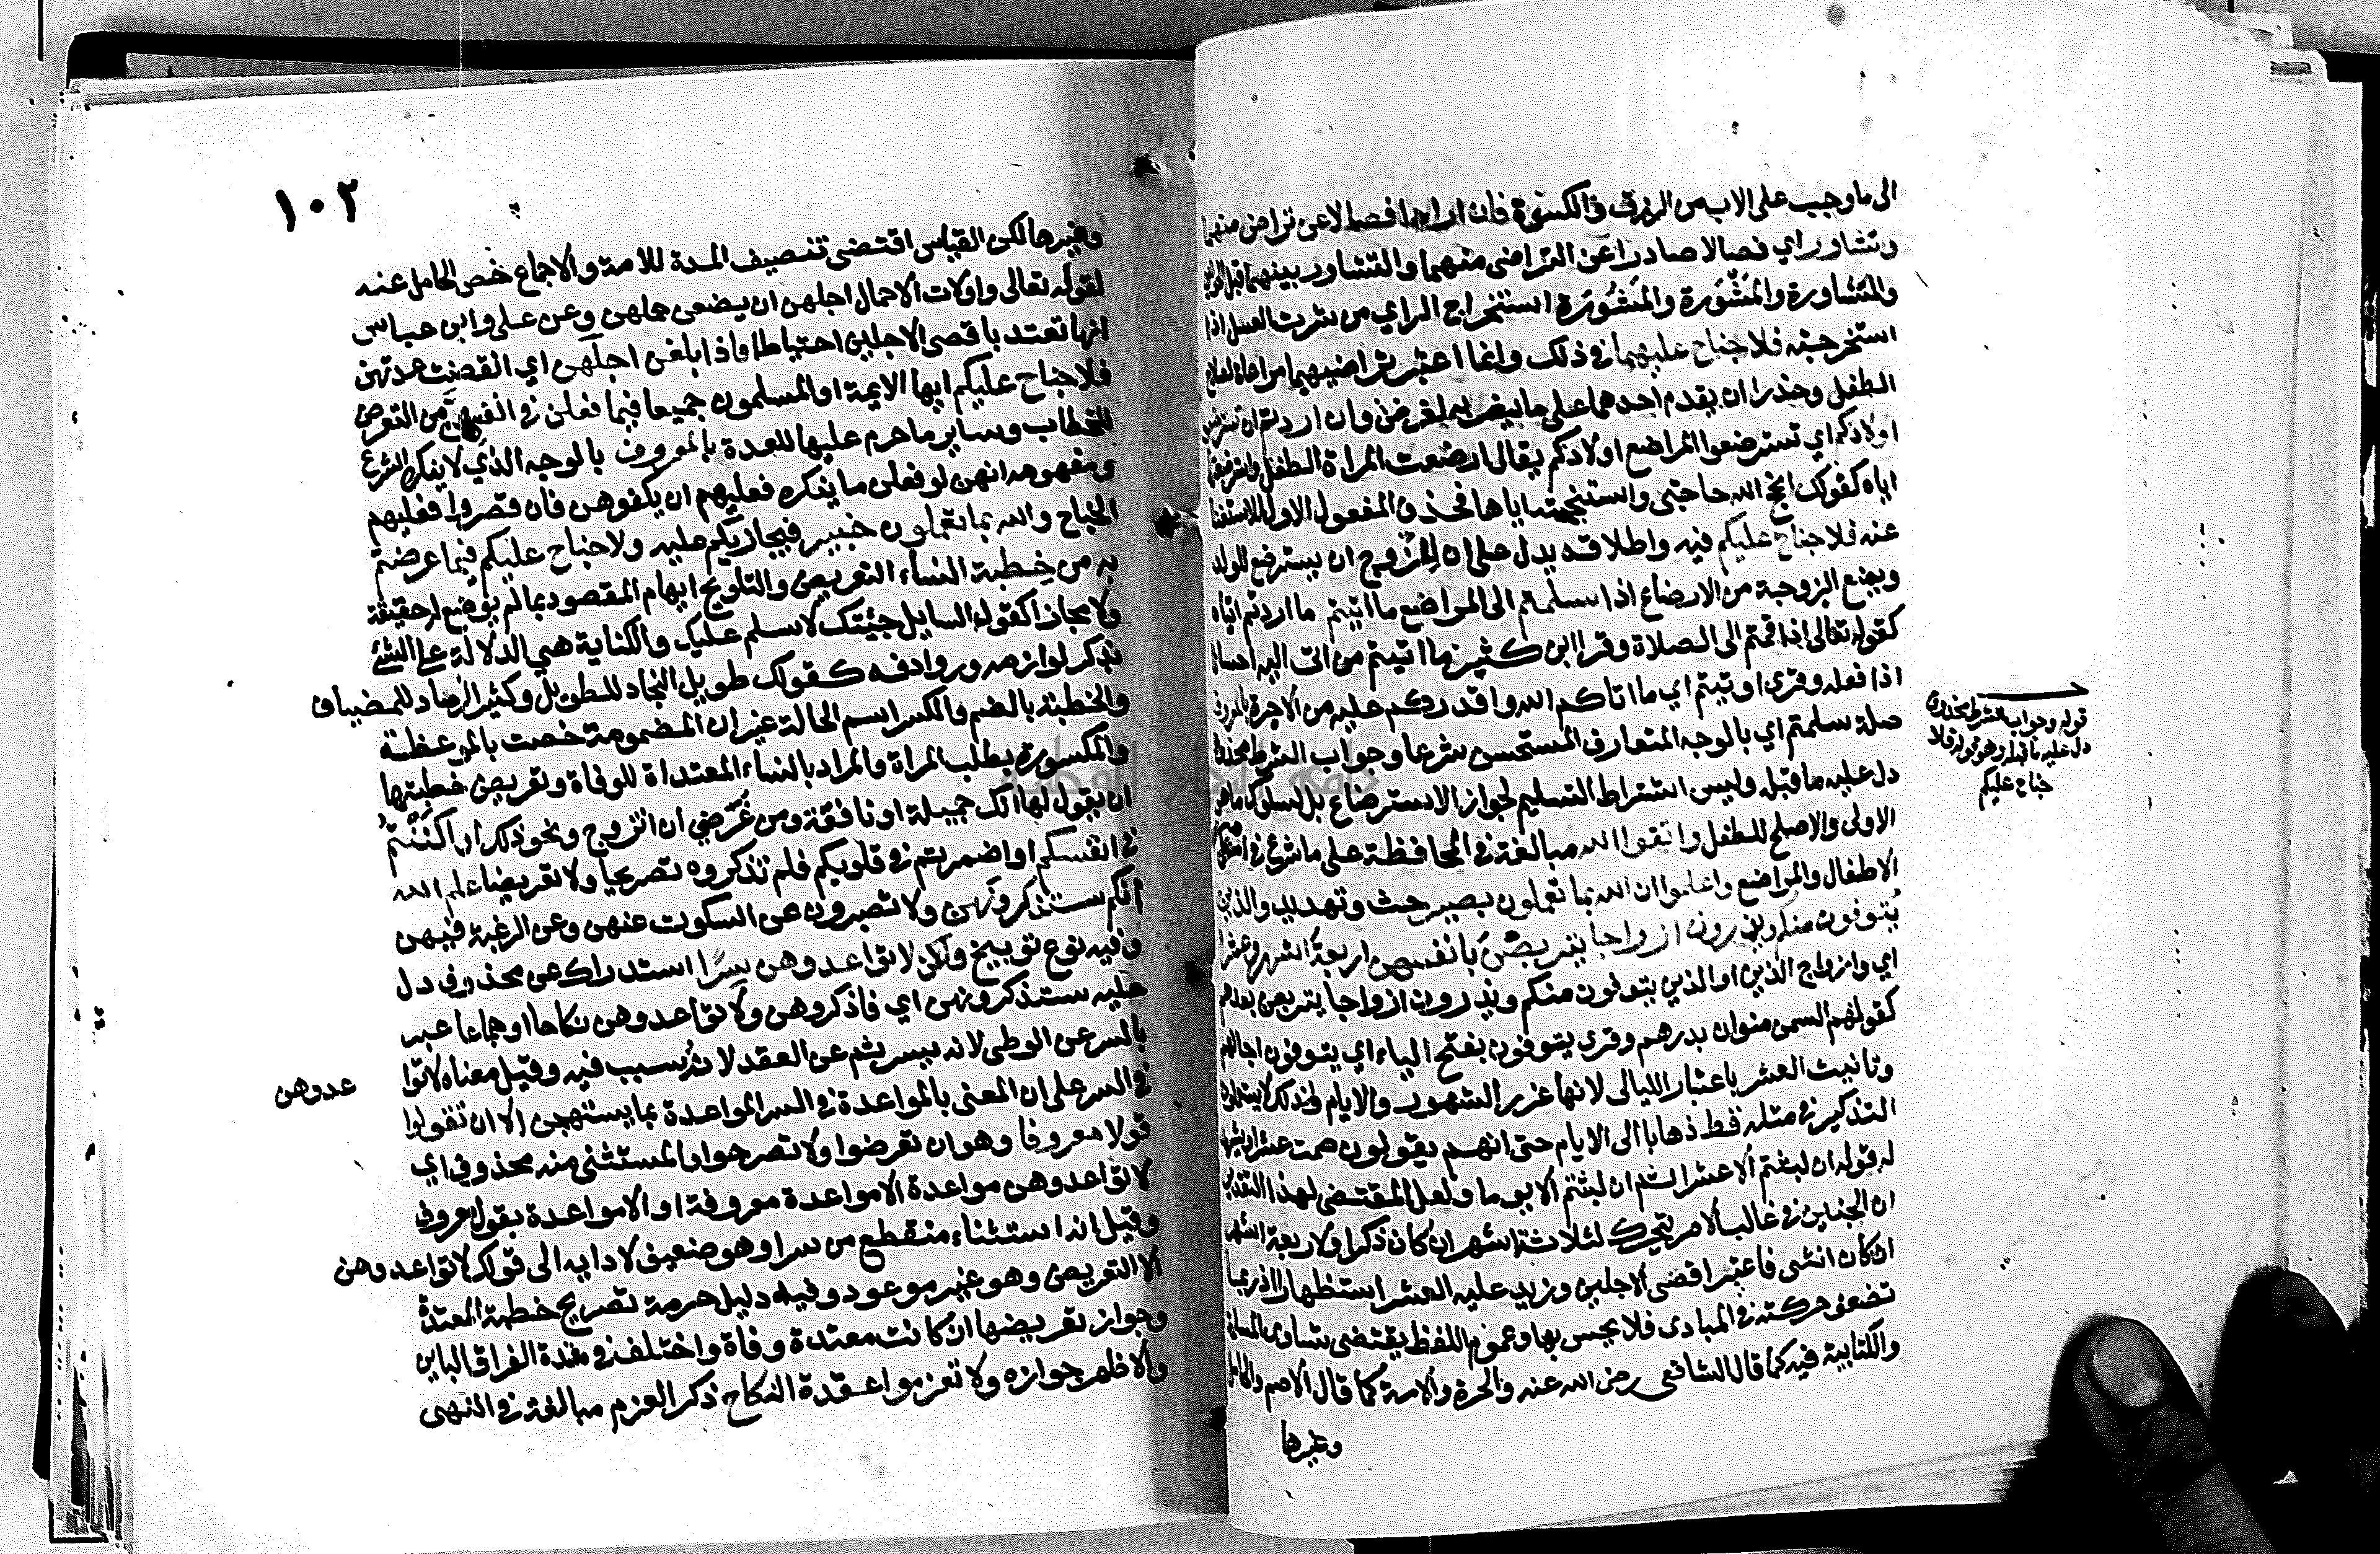 الى ما وجب على الاب من الرزق والكسوة فان ارادا فصالا عن تراض منهما
وتشاور اي فصالا صادرا عن التراضي منهما والتشاور بينهما قبل الحولين
والتشاورة والمشاورة والمشورة استخراج الراي من شرت العسل اذا
استخرجته فلا جناح عليهما في ذلك وانما اعتبر تراضيهما مراعاة لصلاح
الطفل وحذرا ان يقدم احدهما على ما يضر به لغرض وان اردتم ان تسترضعوا
اولادكم اي تسترضعوا المراضع اولادكم يقال ارضعت المراة الطفل واسترضعتها
اياه كقولك انجح الله حاجتي واستنجحته اياها فحذف المفعول الاول للاستغنا
عنه فلا جناح عليكم فيه واطلاقه يدل على ان للزوج ان يسترضع للولد
ويمنع الزوجة من الارضاع اذا سلمتم الى المراضع ما اتيتم ما اردتم اتياه
كقوله تعالى اذا قمتم الى الصلاة وقرا ابن كثير ما اتيتم من اتى اليه احسانا
اذا فعله وقرى اوتيتم اي ما اتاكم الله واقدركم عليه من الاجرة بالمعروف
صلة سلمتم اي بالوجه المتعارف المستحسن شرعا وجواب الشرط محذوف
دل عليه ما قبله وليس اشتراط التسليم لجواز الاسترضاع بل لسلوك ما هو
الاولى والاصلح للطفل واتقوا الله مبالغة في المحافظة على ما شرع في امر
الاطفال والمراضع واعلموا ان الله بما تعملون بصير حث وتهديد والذين
يتوفون منكم ويذرون ازواجا يتربصن بانفسهن اربعة اشهر وعشرا
اي وازواج الذين او الذين يتوفون منكم ويذرون ازواجا يتربصن بعدهم
كقولهم السمن منوان بدرهم وقرى يتوفون بفتح الياء اي يتوفون اجالهم
وتانيث العشر باعتبار الليالى لانها غرر الشهور والايام ولذلك لا يستعملون
التذكير في مثله قط ذهابا الى الايام حتى انهم يقولون صمت عشرا ويشهد
له قوله ان لبثتم الا عشرا ثم ان لبثتم الا يوما ولعل المقتضى لهذا التقدير
ان الجنين في غالب الامر يتحرك لثلاثة اشهر ان كان ذكرا ولاربعة اشهر
ان كان انثى فاعتبر اقصى الاجلين وزيد عليه العشر استظهارا اذ ربما
تضعف حركته في المبادى فلا يحس بها وعموم اللفظ يقتضى تساوى المسلمة
والكتابية فيه كما قال الشافعى رضى الله عنه والحرة والامة كما قال الاصم والحامل
وغيرها
قوله وجواب الشرط محذوف
دل عليه ما قبله وهو قوله فلا
جناح عليكم
١٠٢
وغيرها لكن القياس اقتضى تنصيف المدة للامة والاجماع خص الحامل عنه
لقوله تعالى واولات الاحمال اجلهن ان يضعن حملهن وعن على وابن عباس
انها تعتد باقصى الاجلين احتياطا فاذا بلغن اجلهن اي انقضت عدتهن
فلا جناح عليكم ايها الايمة او المسلمون جميعا فيما فعلن في انفسهن من التعرض
للخطاب وساير ما حرم عليها للعدة بالمعروف بالوجه الذي لا ينكره الشرع
ومفهومه انهن لو فعلن ما ينكره فعليهم ان يكفوهن فان قصروا فعليهم
الجناح والله بما تعملون خبير فيجازيكم عليه ولا جناح عليكم فيما عرضتم
به من خطبة النساء التعريض والتلويح ايهام المقصود بما لم يوضع له حقيقة
ولا مجازا كقول السايل جئتك لاسلم عليك والكناية هي الدلالة على الشئ
بذكر لوازمه وروادفه كقولك طويل النجاد للطويل وكثير الرماد للمضياف
والخطبة بالضم والكسر اسم الحالة غير ان المضمومة خصت بالموعظة
والمكسورة بطلب المراة والمراد بالنساء المعتداة للوفاة وتعريض خطبتها
ان يقول لها انك جميلة او نافقة ومن غرضي ان اتزوج ونحو ذلك او اكننتم
في انفسكم او اضمرتم في قلوبكم فلم تذكروه تصريحا ولا تعريضا علم الله
انكم ستذكرونهن ولا تصبرون عن السكوت عنهن وعن الرغبة فيهن
وفيه نوع توبيخ ولكن لا تواعدوهن سرا استدراك عن محذوف دل
عليه ستذكرونهن اي فاذكروهن ولا تواعدوهن نكاحا او جماعا عبر
بالسر عن الوطى لانه يسر ثم عن العقد لانه سبب فيه وقيل معناه لا توا
عدوهن
في السر على ان المعنى بالمواعدة في السر المواعدة بما يستهجن الا ان تقولوا
قولا معروفا وهو ان تعرضوا ولا تصرحوا والمستثنى منه محذوف اي
لا تواعدوهن مواعدة الا مواعدة معروفة او الا مواعدة بقول معروف
وقيل انه استثناء منقطع من سرا وهو ضعيف لادايه الى قولك لا تواعدوهن
الا التعريض وهو غير موعود وفيه دليل حرمة تصريح خطبة المعتدة
وجواز تعريضها ان كانت معتدة وفاة واختلف في معتدة الفراق الباين
والاظهر جوازه ولا تعزموا عقدة النكاح ذكر العزم مبالغة في النهى